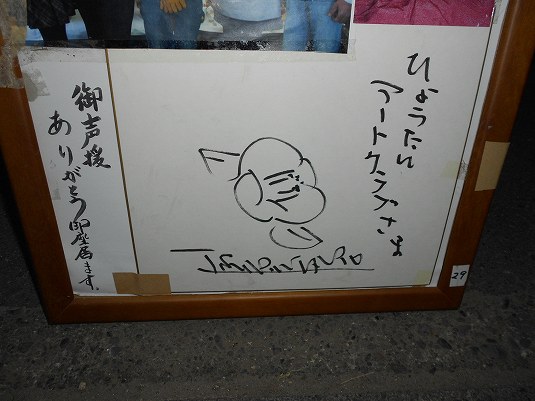 ひょうたん
アートクラブさま
御声援
ありがとう御座居ます。
29